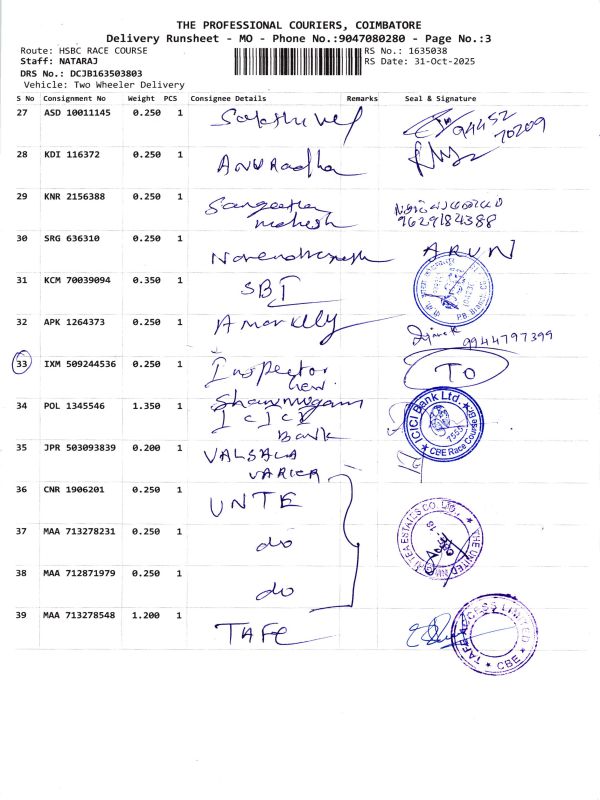 THE PROFESSIONAL COURIERS, COIMBATORE
Delivery Runsheet - MO - Phone No.:9047080280 - Page No.:3
Route: HSBC RACE COURSE RS No.: 1635038
Staff: NATARAJ RS Date: 31-Oct-2025
DRS No.: DCJB163503803
Vehicle: Two Wheeler Delivery
S No Consignment No Weight PCS Consignee Details Remarks Seal & Signature
27 ASD 10011145 0.250 1 Sakthivel 94452
70209
28 KDI 116372 0.250 1 Anuradha
29 KNR 2156388 0.250 1 Sangeetha
mahesh 9629184388
30 SRG 636310 0.250 1 ARUN
31 KCM 70039094 0.350 1 SBI
32 APK 1264373 0.250 1 9944797399
33 IXM 509244536 0.250 1 Inspector TO
34 POL 1345546 1.350 1 Shanmugam
ICICI
Bank ICICI Bank Ltd. CBE Race Course
35 JPR 503093839 0.200 1 VALSALA
VARIER
36 CNR 1906201 0.250 1 UNTE
37 MAA 713278231 0.250 1 do THE UNITED TEA ESTATES CO. LTD.
38 MAA 712871979 0.250 1 do
39 MAA 713278548 1.200 1 TAFE TAFE ACCESS LIMITED CBE